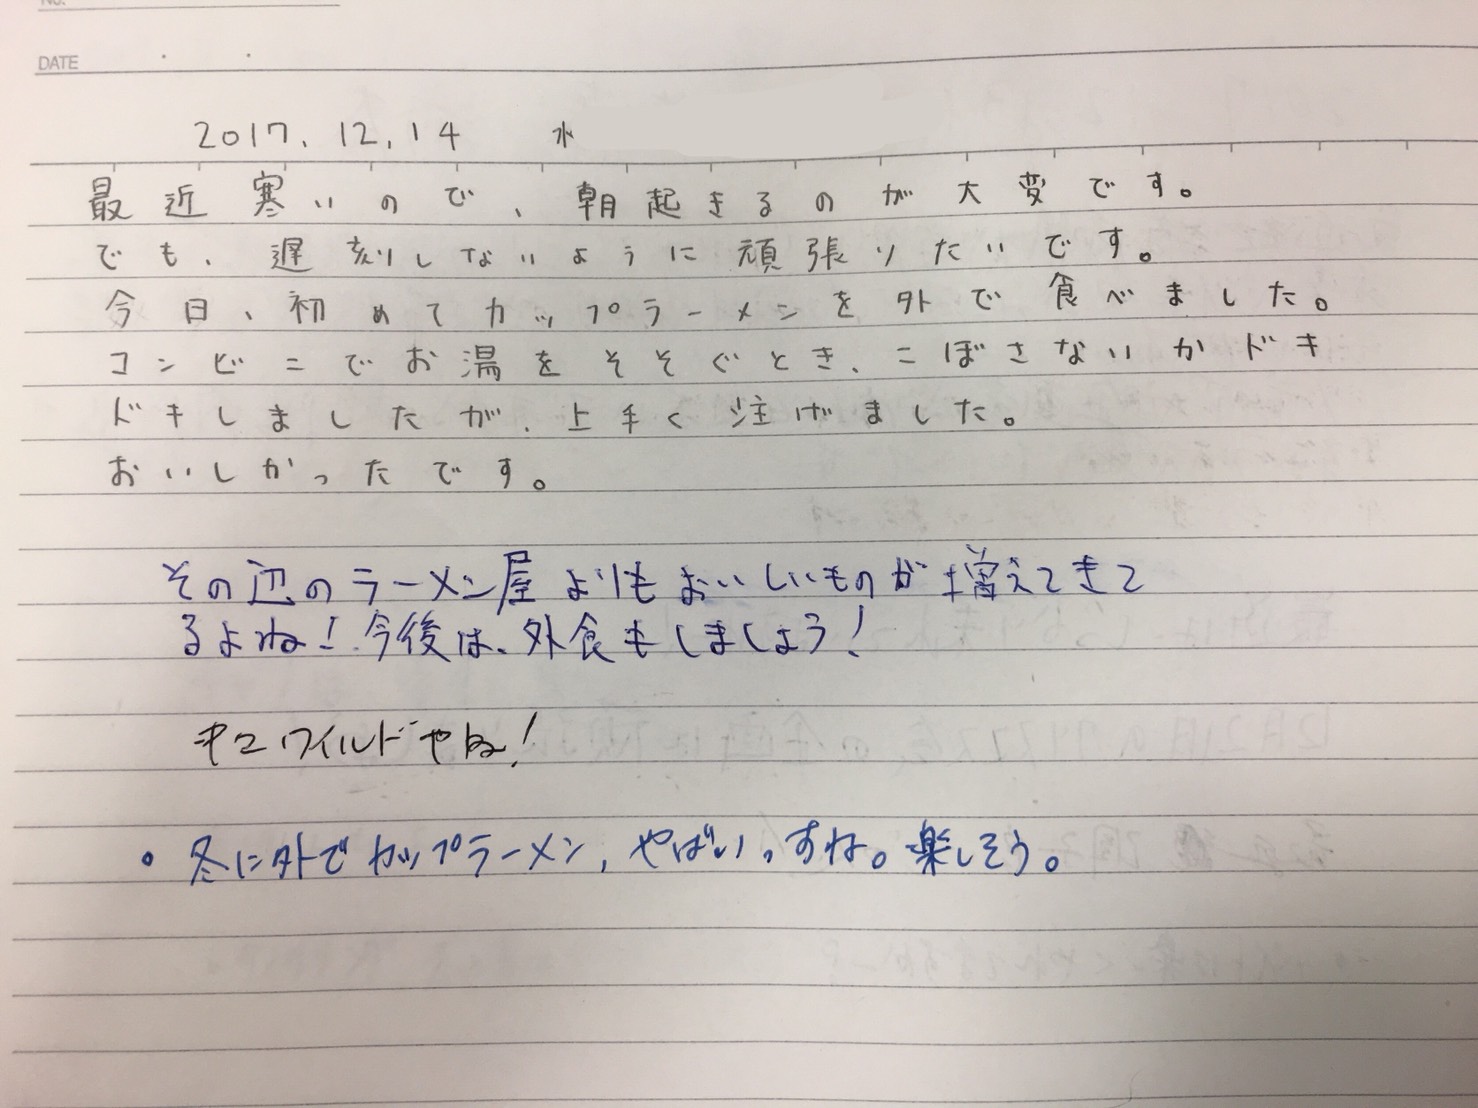 DATE
2017.12.14 水
最近寒いので、朝起きるのが大変です。
でも、遅刻しないように頑張りたいです。
今日、初めてカップラーメンを外で食べました。
コンビニでお湯をそそぐとき、こぼさないかドキ
ドキしましたが、上手く注げました。
おいしかったです。
その辺のラーメン屋よりもおいしいものが増えてきて
るよね！今後は、外食もしましょう！
ワイルドやね！
・冬に外でカップラーメン、やばいっすね。楽しそう。